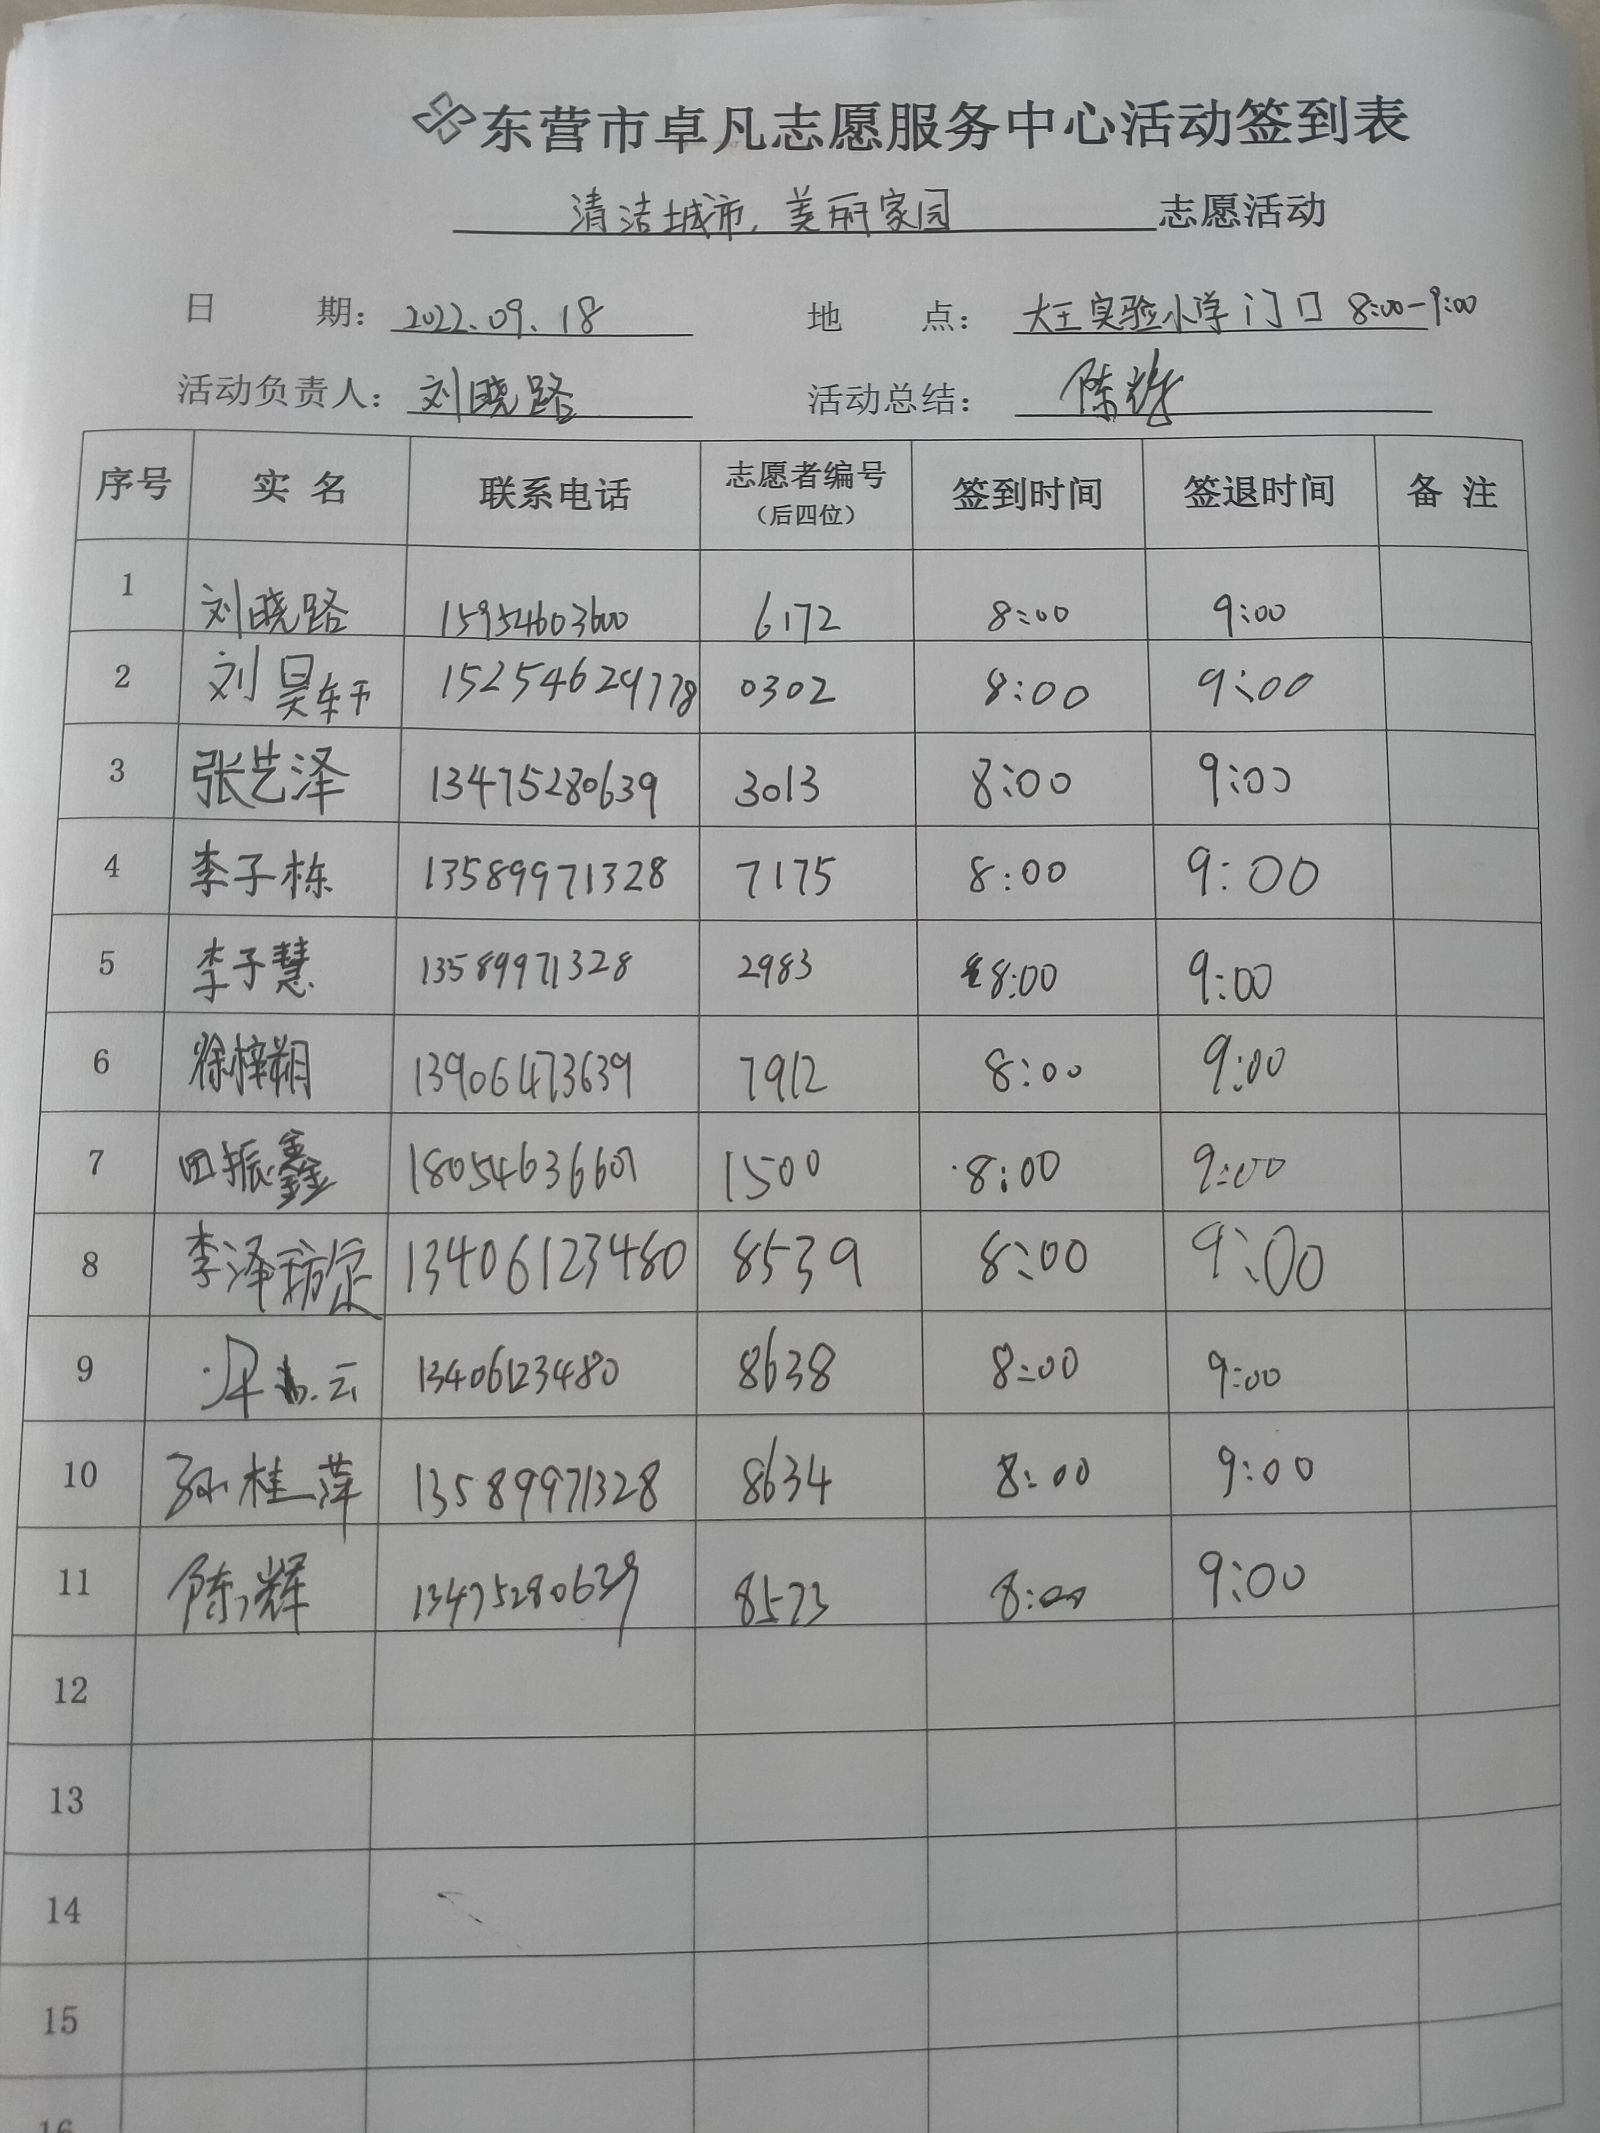 东营市卓凡志愿服务中心活动签到表
清洁城市, 美丽家园 志愿活动
日 期: 2022.09.18 地 点: 大王实验小学门口 8:00-9:00
活动负责人: 刘晓路 活动总结: 陈辉
序号 实 名 联系电话 志愿者编号 签到时间 签退时间 备 注
（后四位）
1 刘晓路 15954603600 6172 8:00 9:00
2 刘昊轩 15254629778 0302 8:00 9:00
3 张艺泽 13475280639 3013 8:00 9:00
4 李子栋 13589971328 7175 8:00 9:00
5 李子慧 13589971328 2983 8:00 9:00
6 徐梓朔 13906473639 7912 8:00 9:00
7 田振鑫 18054636601 1500 8:00 9:00
8 李泽 13406123480 8539 8:00 9:00
9 13406123480 8638 8:00 9:00
10 孙桂萍 13589971328 8634 8:00 9:00
11 陈辉 13475280639 8573 8:00 9:00
12
13
14
15
16